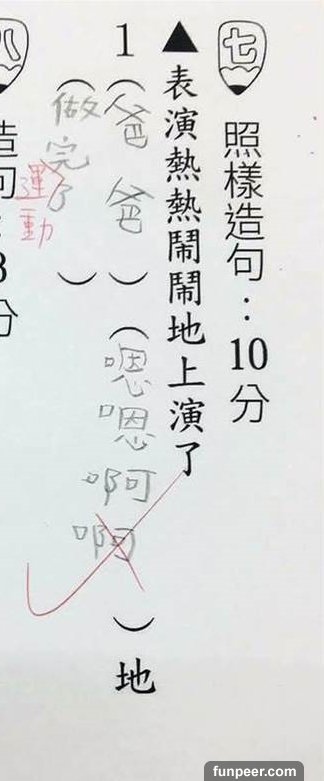 七 照樣造句：10分
▲表演熱熱鬧鬧地上演了
1（爸爸）（嗯嗯啊啊）地
（做完了）
運動
八 造句：8分
funpeer.com